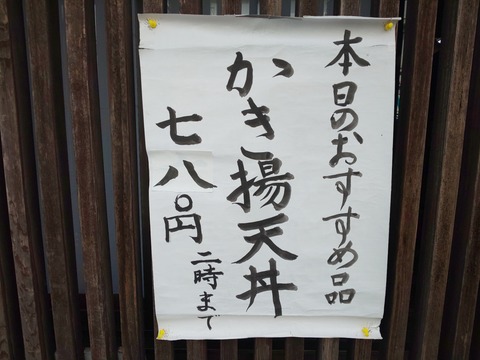 本日のおすすめ品
かき揚天丼
七八〇円
二時まで